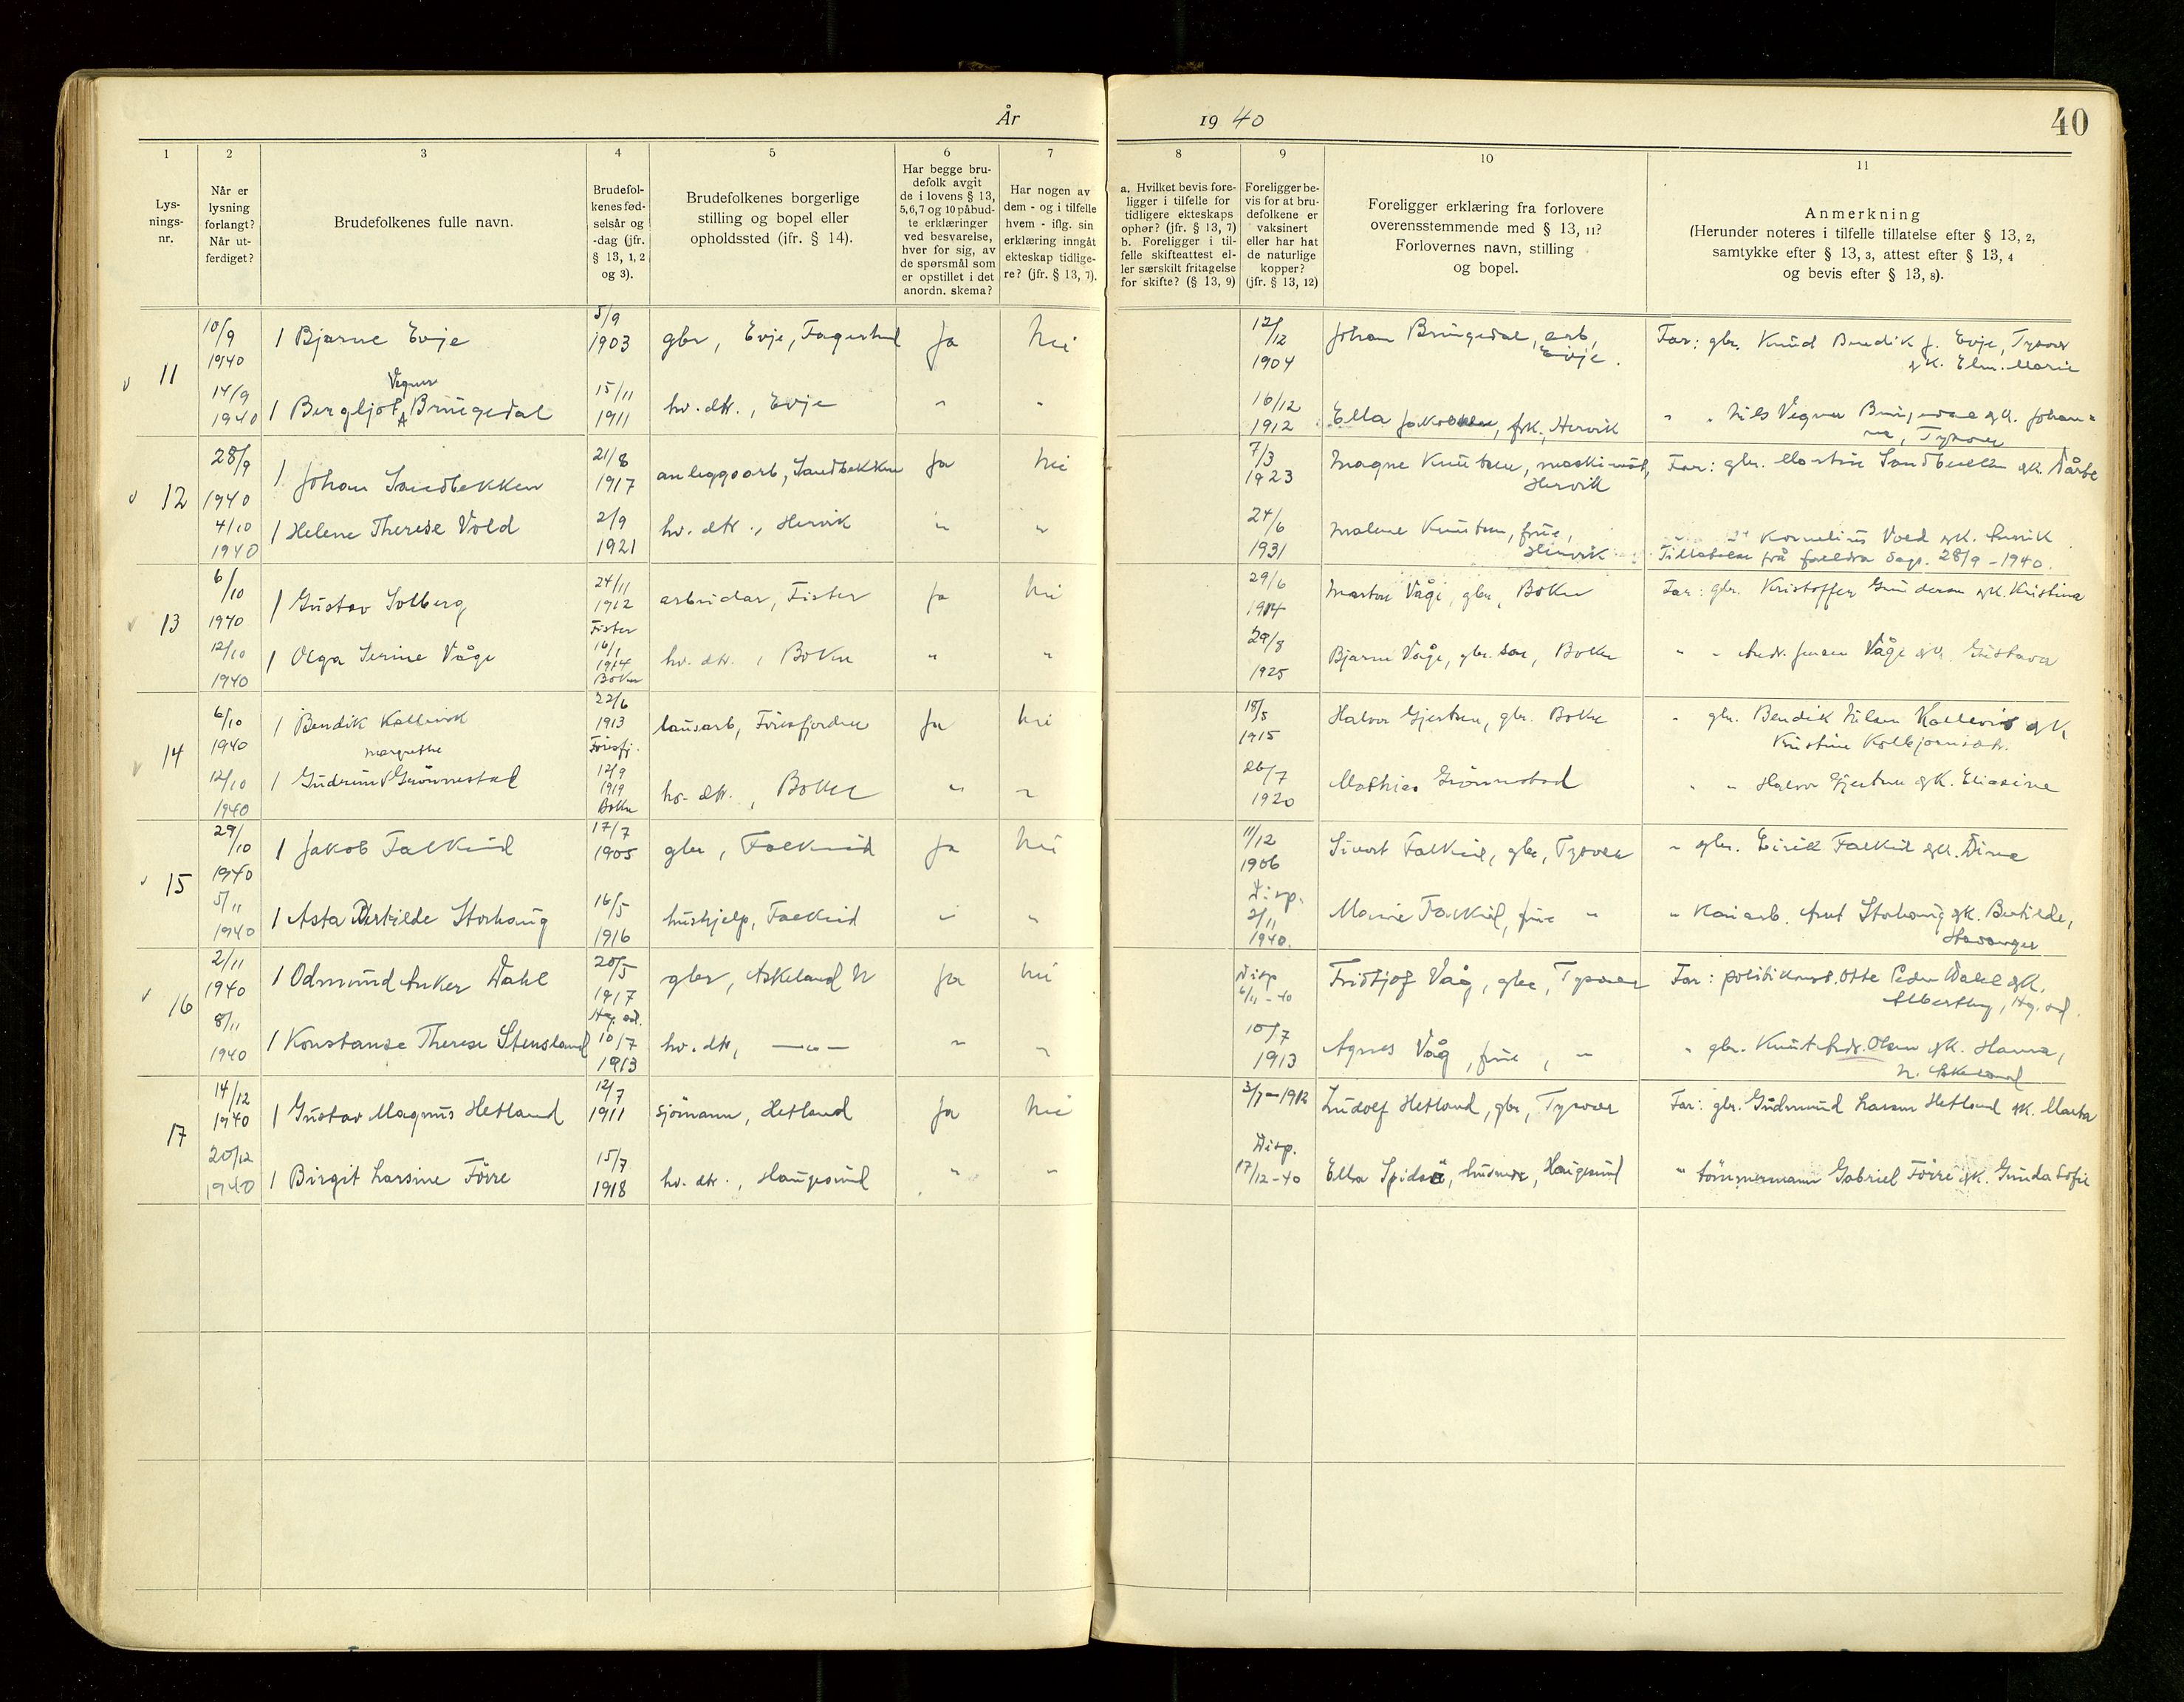 År 1940
40
1 2 3 4 5 6 7 8 9 10 11
Lys-
nings-
nr.
Når er
lysning
forlangt?
Når ut-
ferdiget?
Brudefolkenes fulle navn.
Brudefol-
kenes fød-
selsår og
-dag (jfr.
§ 13, 1, 2
og 3).
Brudefolkenes borgerlige
stilling og bopel eller
opholdssted (jfr. § 14).
Har begge bru-
defolk avgit
de i lovens § 13,
5,6,7 og 10 påbud-
te erklæringer
ved besvarelse,
hver for sig, av
de spørsmål som
er opstillet i det
anordn. skema?
Har nogen av
dem - og i tilfelle
hvem - iflg. sin
erklæring inngåt
ekteskap tidlige-
re? (jfr. § 13, 7).
a. Hvilket bevis fore-
ligger i tilfelle for
tidligere ekteskaps
ophør? (jfr. § 13, 7)
b. Foreligger i til-
felle skifteattest el-
ler særskilt fritagelse
for skifte? (§ 13, 9)
Foreligger be-
vis for at bru-
defolkene er
vaksinert
eller har hat
de naturlige
kopper?
(jfr. § 13, 12)
Foreligger erklæring fra forlovere
overensstemmende med § 13, 11?
Forlovernes navn, stilling
og bopel.
Anmerkning
(Herunder noteres i tilfelle tillatelse efter § 13, 2,
samtykke efter § 13, 3, attest efter § 13, 4
og bevis efter § 13, 8).
11
10/9 1940 1 Bjarne Evje 5/9 1903 gbr, Evje, Ja Nei 12/12 1904 Johan Bringedal, arb, Evje. Far: gbr. Knud Bendik J. Evje, Tysvær
gk. Marie
14/9 1940 1 Bergljot Vegner Bringedal 15/11 1911 hv. dtr., Evje " " 16/12 1912 Ella Jakobsen, frk., Hervik " " Nils Vegner Bringedal gk. Johan=
ne, Tysvær
12
28/9 1940 1 Johan Sandbekken 21/8 1917 anleggsarb, Sandbekken Ja Nei 7/3 1923 Magne Knutsen, maskinist, Hervik Far: gbr. Martin Sandbekken gk.
4/10 1940 1 Helene Therese Vold 2/9 1921 hv. dtr., Hervik " " 24/6 1931 Malene Knutsen, frue, Hervik Kornelius Vold gk.
Tillatelse frå foreldra dags. 28/9 - 1940.
13
6/10 1940 1 Gustav Solberg 24/11 1912 Fister arbeidar, Fister Ja Nei 29/6 1914 Marton Våge, gbr, Bokn Far: gbr. Kristoffer Gunderson gk. Kristina
12/10 1940 1 Olga Serine Våge 16/1 1914 Bokn hv. dtr., Bokn " " 29/8 1925 Bjarne Våge, gbr. søn, Bokn " " Andr. Jensen Våge gk. Gustava
14
6/10 1940 1 Bendik Kallevik 22/6 1913 Föresfj. lausarb, Föresfjorden Ja Nei 18/5 1915 Halvor Gjertsen, gbr. Bokn " gbr. Bendik Nilsen Kallevik gk
Kristine Kolbjørnsdtr.
12/10 1940 1 Gudrun Margrethe Grönnestad 12/9 1919 Bokn hv. dtr., Bokn " " 26/7 1920 Mathias Grönnestad " " Halvor Gjertsen gk. Eliasine
15
29/10 1940 1 Jakob Falkeid 17/7 1905 gbr, Falkeid Ja Nei 11/12 1906 Sivert Falkeid, gbr, Tysvær " gbr. Eirik Falkeid gk. Dina
5/11 1940 1 Asta Bertilde Storhaug 16/5 1916 hushjelp, Falkeid " " Disp. 2/11 1940. Marie Falkeid, frue " " Kaiarb. Storhaug gk. Bertilde,
Stavanger
16
2/11 1940 1 Odmund Anker Dahl 20/5 1917 Hg.sd. gbr, Askeland N Ja Nei Disp 6/11-40 Fridtjof Våg, gbr, Tysvær Far: politikonst. Otto Peder Dahl gk.
Hg.sd.
8/11 1940 1 Konstanse Therese Stensland 10/7 1913 hv. dtr, —"— " " 10/7 1913 Agnes Våg, frue, " " gbr. Knut Andr. Olsen gk. Hanna,
N. Askeland
17
14/12 1940 1 Gustav Magnus Hetland 12/7 1911 sjömann, Hetland Ja Nei 3/7-1912 Ludolf Hetland, gbr, Tysvær Far: gbr. Gudmund Larsen Hetland gk. Marta
20/12 1940 1 Birgit Larsine Förre 15/7 1918 hv. dtr., Haugesund " " Disp. 17/12-40 Ella Haugesund " tömmermann Gabriel Förre gk. Gunda Sofie